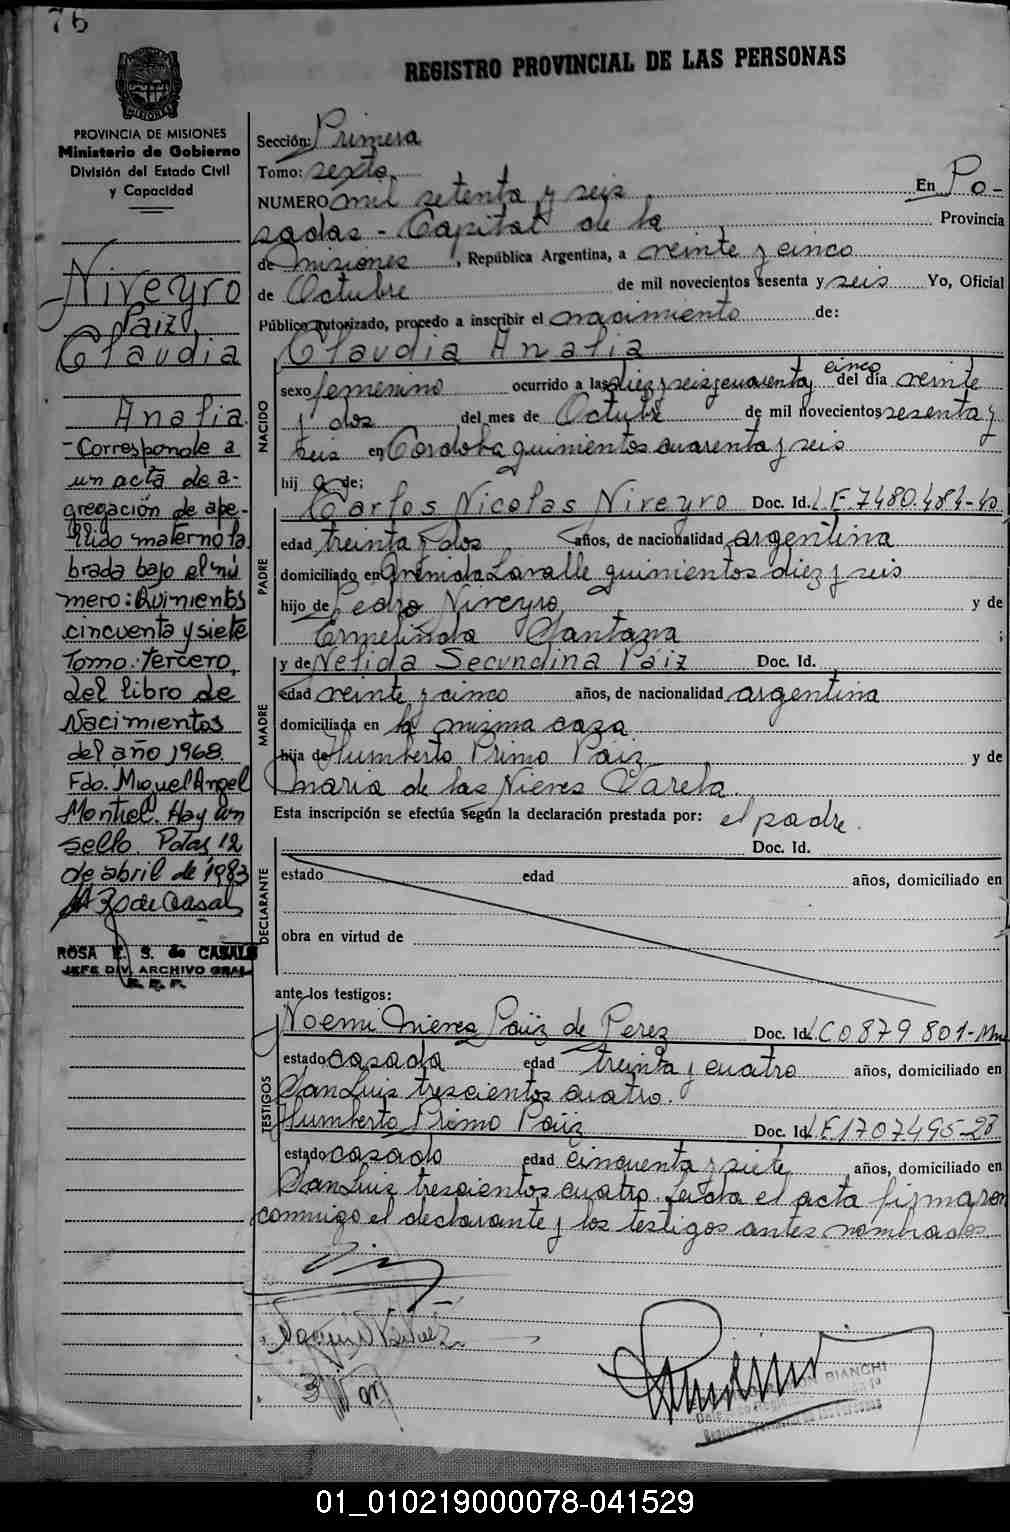 76
REGISTRO PROVINCIAL DE LAS PERSONAS
PROVINCIA DE MISIONES
Ministerio de Gobierno
División del Estado Civil
y Capacidad
Niveyro
Paiz,
Claudia
Analia.
-Corresponde a
un acta de a-
gregación de ape-
llido materno la
brada bajo el nú
mero: Quinientos
cincuenta y siete
Tomo: Tercero,
del libro de
Nacimientos
del año 1968.
Fdo. Miguel Angel
Montiel. Hay un
sello. Pdas, 12
de abril de 1983
ROSA E. S. de CASALS
JEFE DIV. ARCHIVO GRAL
R. P. P.
Sección: Primera
Tomo: sexto
NUMERO mil setenta y seis En Po-
sadas - Capital de la Provincia
de misiones, República Argentina, a veinte y cinco
de Octubre de mil novecientos sesenta y seis Yo, Oficial
Público autorizado, procedo a inscribir el nacimiento de:
Claudia Analia
NACIDO
sexo femenino ocurrido a las diez y seis y cuarenta y cinco del día veinte
y dos del mes de Octubre de mil novecientos sesenta y
seis en Cordoba quinientos cuarenta y seis
hij a de;
PADRE
Carlos Nicolas Niveyro Doc. Id. L.E. 7480.484-
edad treinta y dos años, de nacionalidad argentina
domiciliado en Avenida Lavalle quinientos diez y seis
hijo de Pedro Niveyro y de
Ermelinda Santana ;
MADRE
y de Nelida Secundina Paiz Doc. Id.
edad veinte y cinco años, de nacionalidad argentina
domiciliada en la misma casa
hija de Humberto Primo Paiz y de
maria de las Nieves Varela.
Esta inscripción se efectúa según la declaración prestada por: el padre.
DECLARANTE
Doc. Id.
estado edad años, domiciliado en
obra en virtud de
ante los testigos:
TESTIGOS
Noemi Nieves Paiz de Perez Doc. Id. L.C 0.879.801-Mnes
estado casada edad treinta y cuatro años, domiciliado en
San Luis trescientos cuatro.
Humberto Primo Paiz Doc. Id. L.E 1.707.495-
estado casado edad cincuenta y siete años, domiciliado en
San Luis trescientos cuatro. Leida el acta firmaron
conmigo el declarante y los testigos antes nombrados.
BIANCHI
01_010219000078-041529